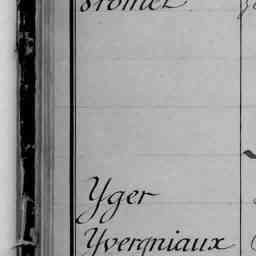 Yger
Yvergniaux